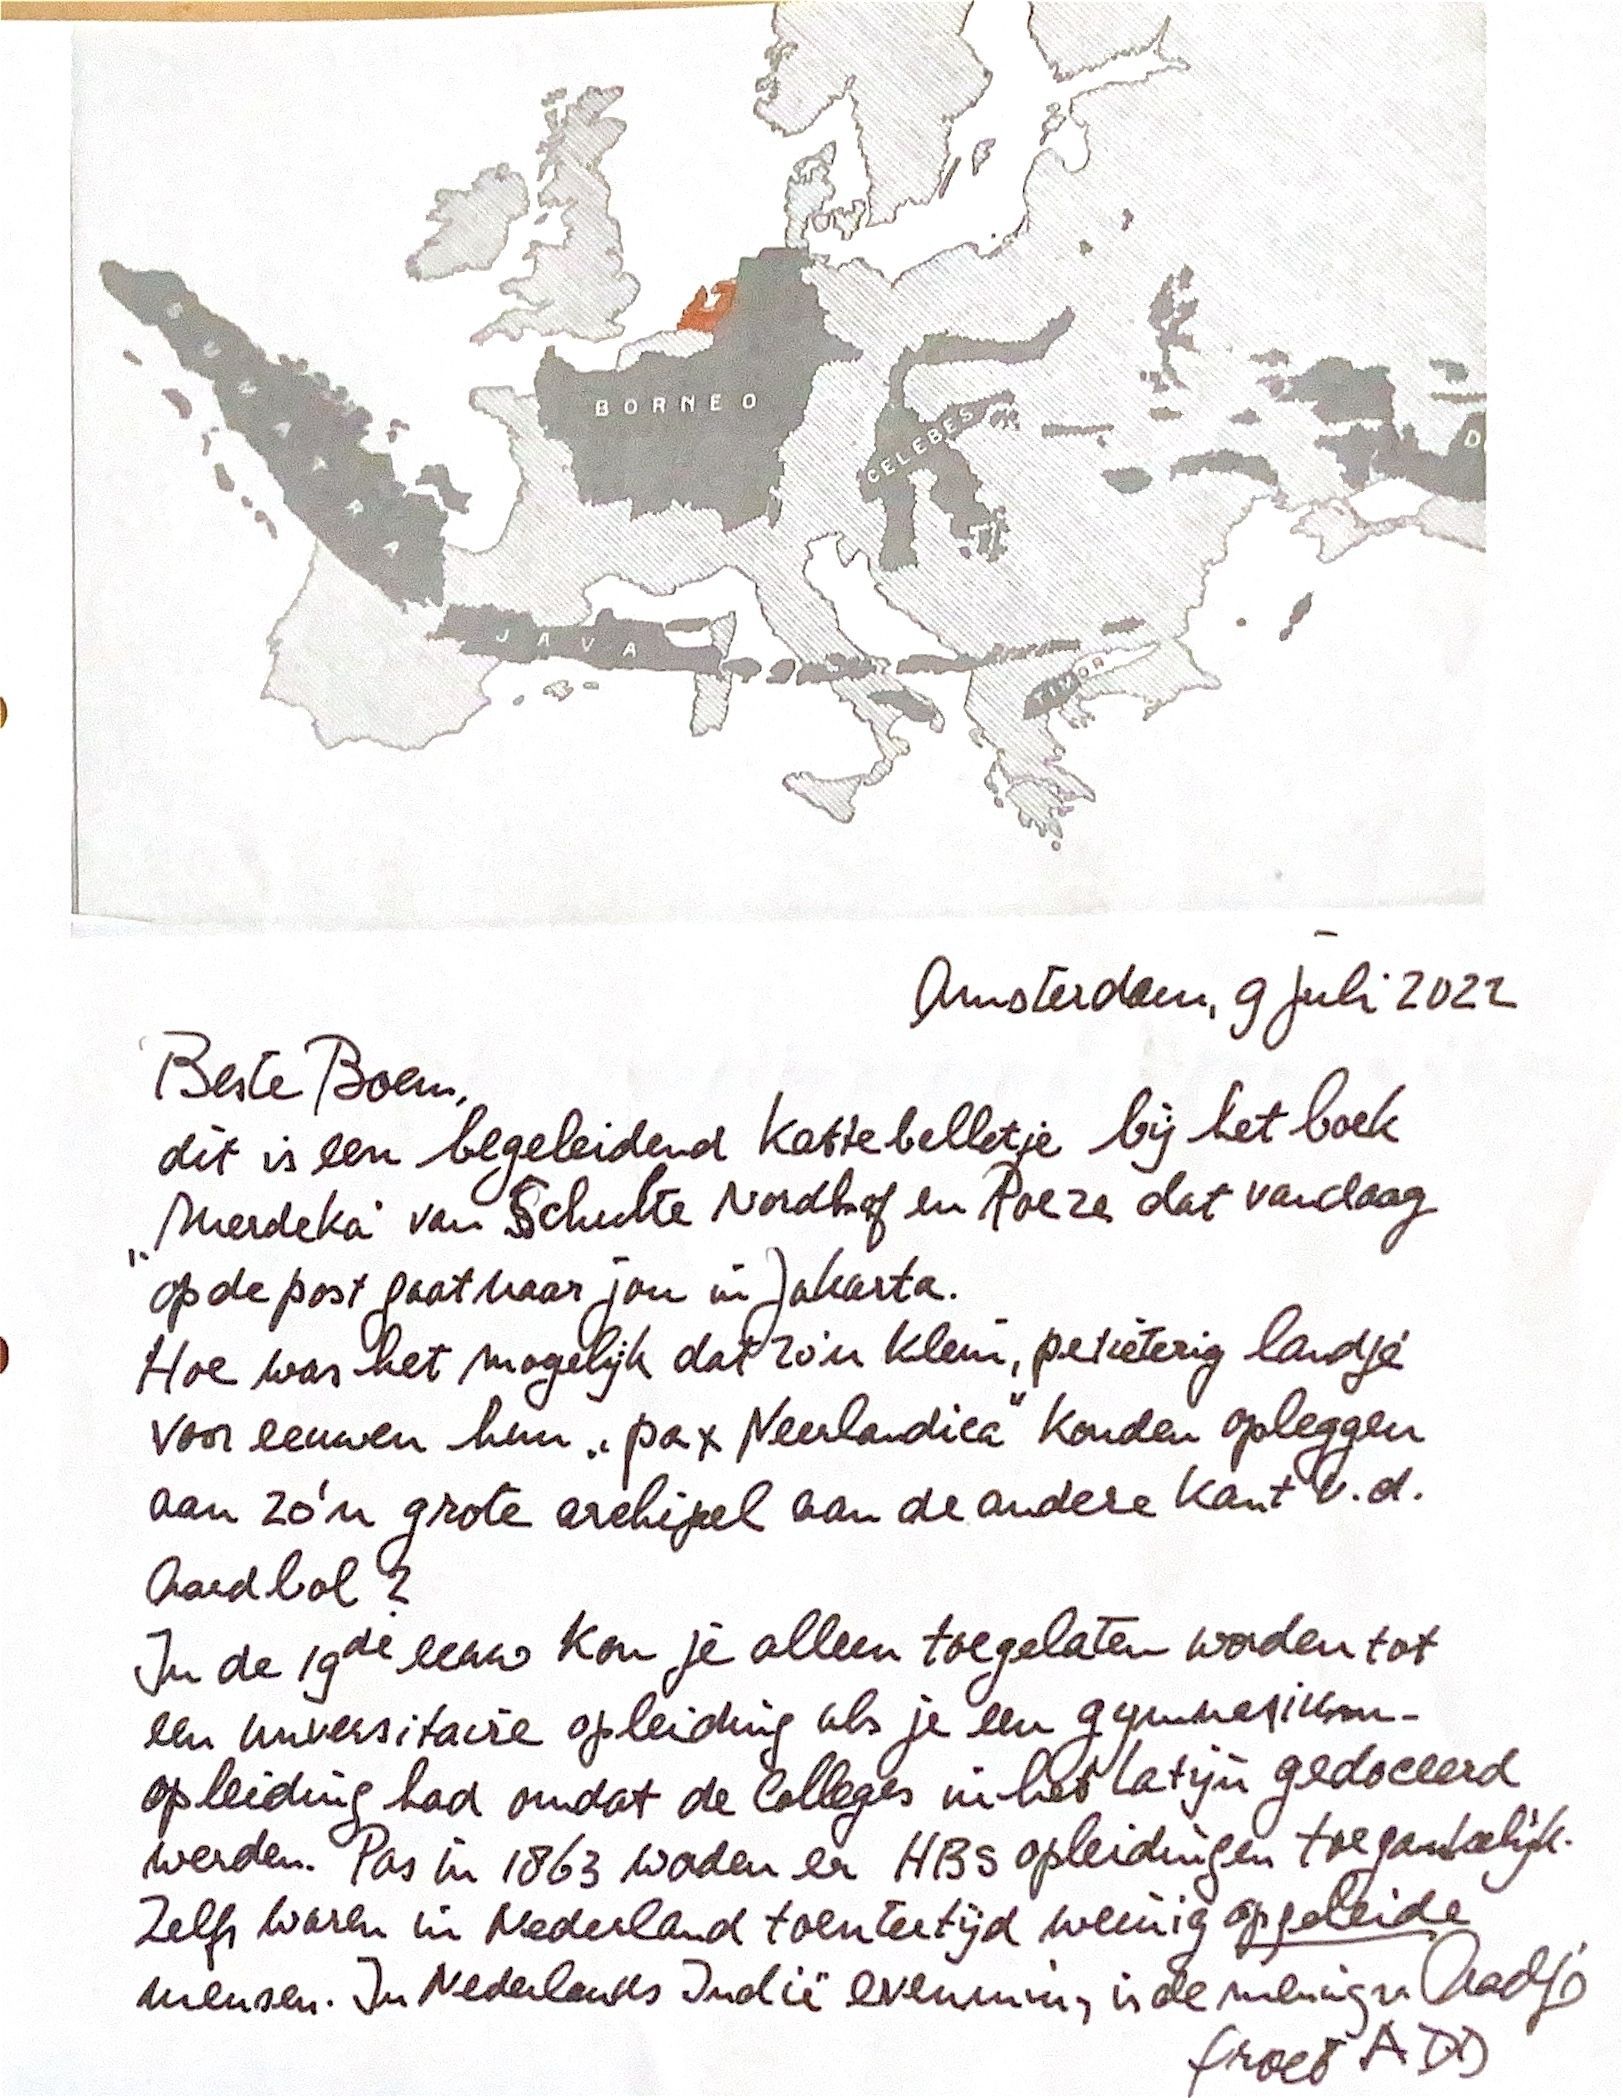 SUMATRA
BORNEO
CELEBES
D
JAVA
TIMOR
Amsterdam, 9 juli 2022
Beste Boem,
dit is een begeleidend kattebelletje bij het boek
"Merdeka" van Schulte Nordholt en Poeze dat vandaag
op de post gaat naar jou in Jakarta.
Hoe was het mogelijk dat zo'n klein, petieterig landje
voor eeuwen hun "pax Neerlandica" konden opleggen
aan zo'n grote archipel aan de andere kant v.d.
Aardbol?
In de 19de eeuw kon je alleen toegelaten worden tot
een universitaire opleiding als je een gymnasium-
opleiding had omdat de Colleges in het Latijn gedoceerd
werden. Pas in 1863 woden er HBS opleidingen toegankelijk.
Zelfs waren in Nederland toentertijd weinig opgeleide
mensen. In Nederlands Indië evenmin, is de mening v
groet ADD